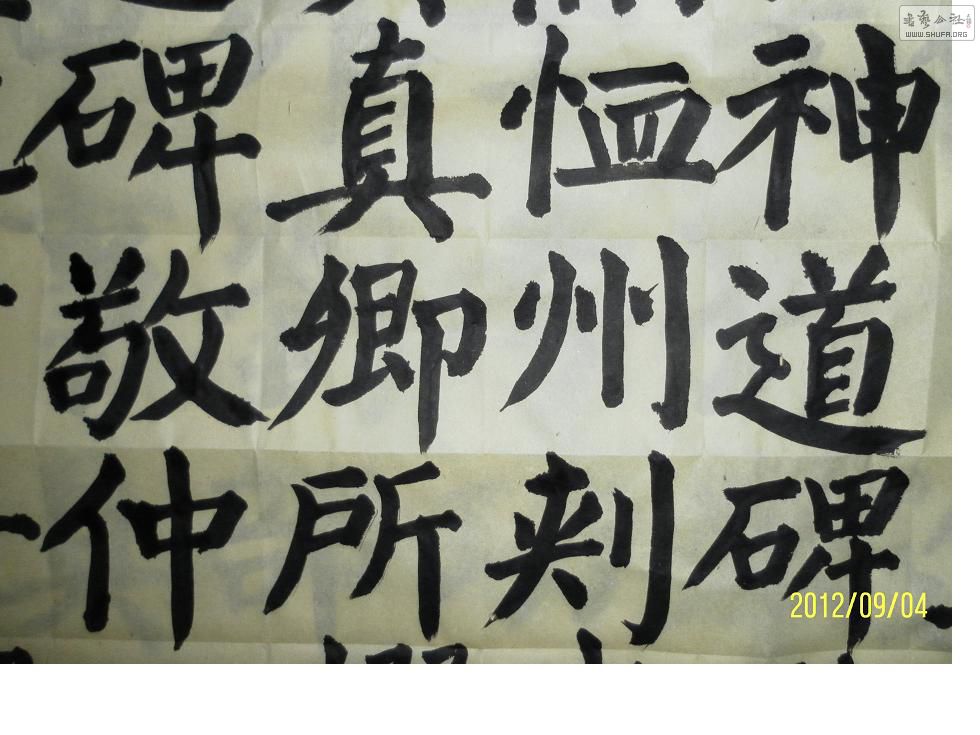 神道碑
恤州刺
真卿所
碑敬仲
2012/09/04
書藝公社
WWW.SHUFA.ORG